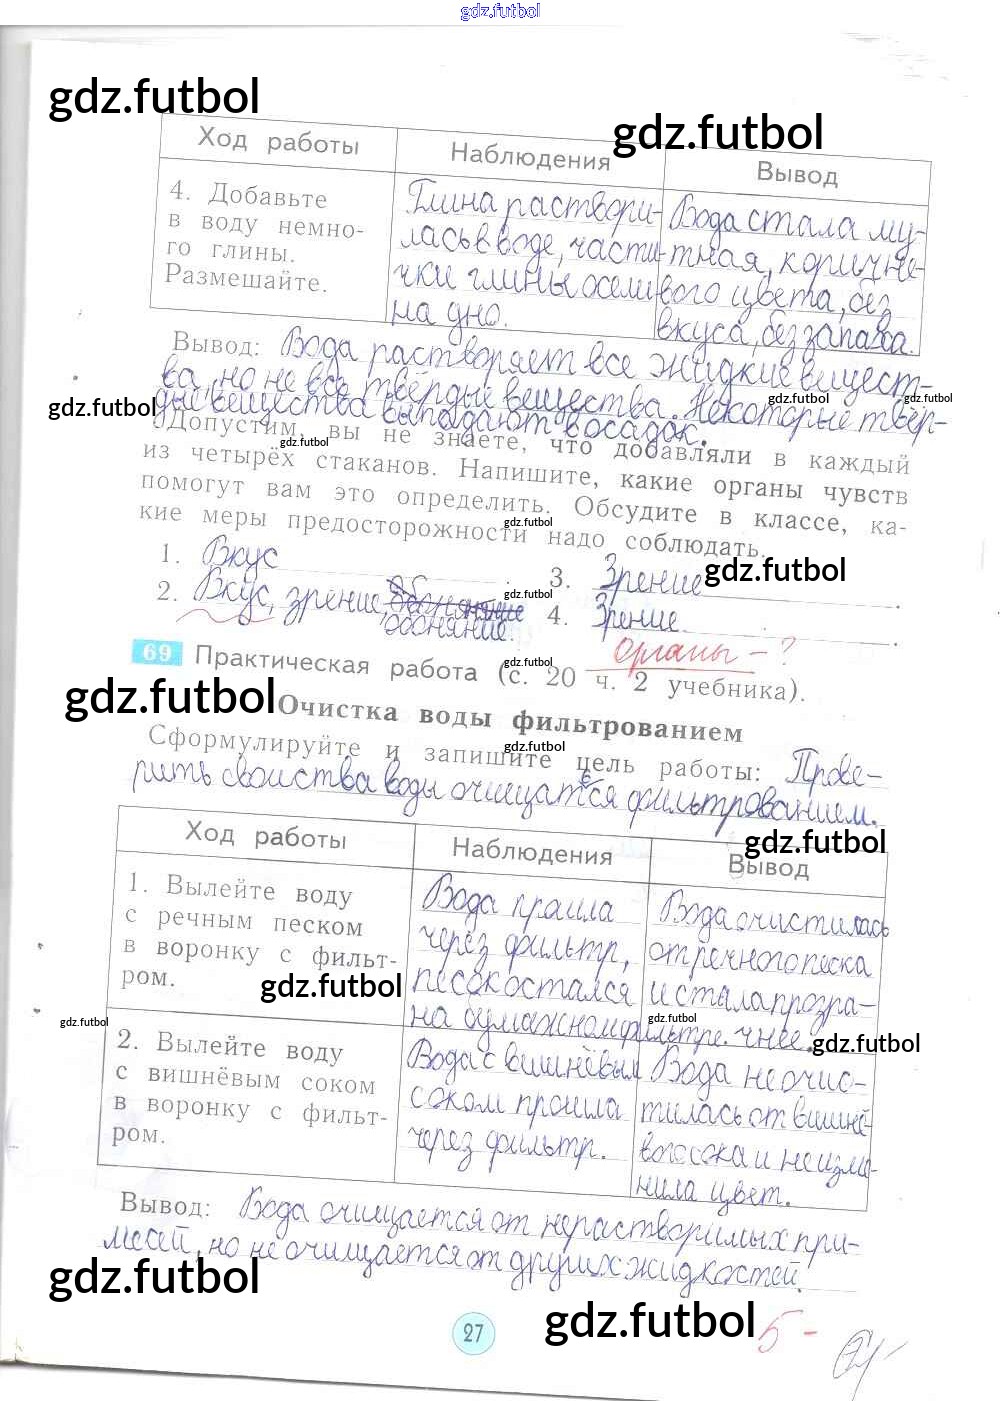 gdz.futbol
gdz.futbol
gdz.futbol
Ход работы Наблюдения Вывод
4. Добавьте
в воду немно-
го глины.
Размешайте.
Глина раствори-
лась в воде, части-
чки глины осели
на дно.
Вода стала му-
тная, коричне-
вого цвета, без
вкуса, без запаха.
Вывод: Вода растворяет все жидкие вещест-
ва, но не все твёрдые вещества. Некоторые твёр-
дые вещества выпадают в осадок.
gdz.futbol
gdz.futbol
gdz.futbol
Допустим, вы не знаете, что добавляли в каждый
gdz.futbol
из четырёх стаканов. Напишите, какие органы чувств
помогут вам это определить. Обсудите в классе, ка-
gdz.futbol
кие меры предосторожности надо соблюдать.
1. Вкус 3. Зрение.
gdz.futbol
2. Вкус, зрение, обоняние. 4. Зрение.
gdz.futbol
gdz.futbol
органы - ?
69 Практическая работа (с. 20 ч. 2 учебника).
gdz.futbol
gdz.futbol
Очистка воды фильтрованием
Сформулируйте и запишите цель работы: Прове-
gdz.futbol
рить свойства воды очищаться фильтрованием.
gdz.futbol
Ход работы Наблюдения Вывод
1. Вылейте воду
с речным песком
в воронку с фильт-
ром.
Вода прошла
через фильтр,
песок остался
на бумажном фильтре.
Вода очистилась
от речного песка
и стала прозра-
чнее.
gdz.futbol
gdz.futbol
gdz.futbol
gdz.futbol
2. Вылейте воду
с вишнёвым соком
в воронку с фильт-
ром.
Вода с вишнёвым
соком прошла
через фильтр.
Вода не очис-
тилась от вишнё-
вого сока и не изме-
нила цвет.
Вывод: Вода очищается от нерастворимых при-
месей, но не очищается от других жидкостей.
gdz.futbol
gdz.futbol
27
5 -